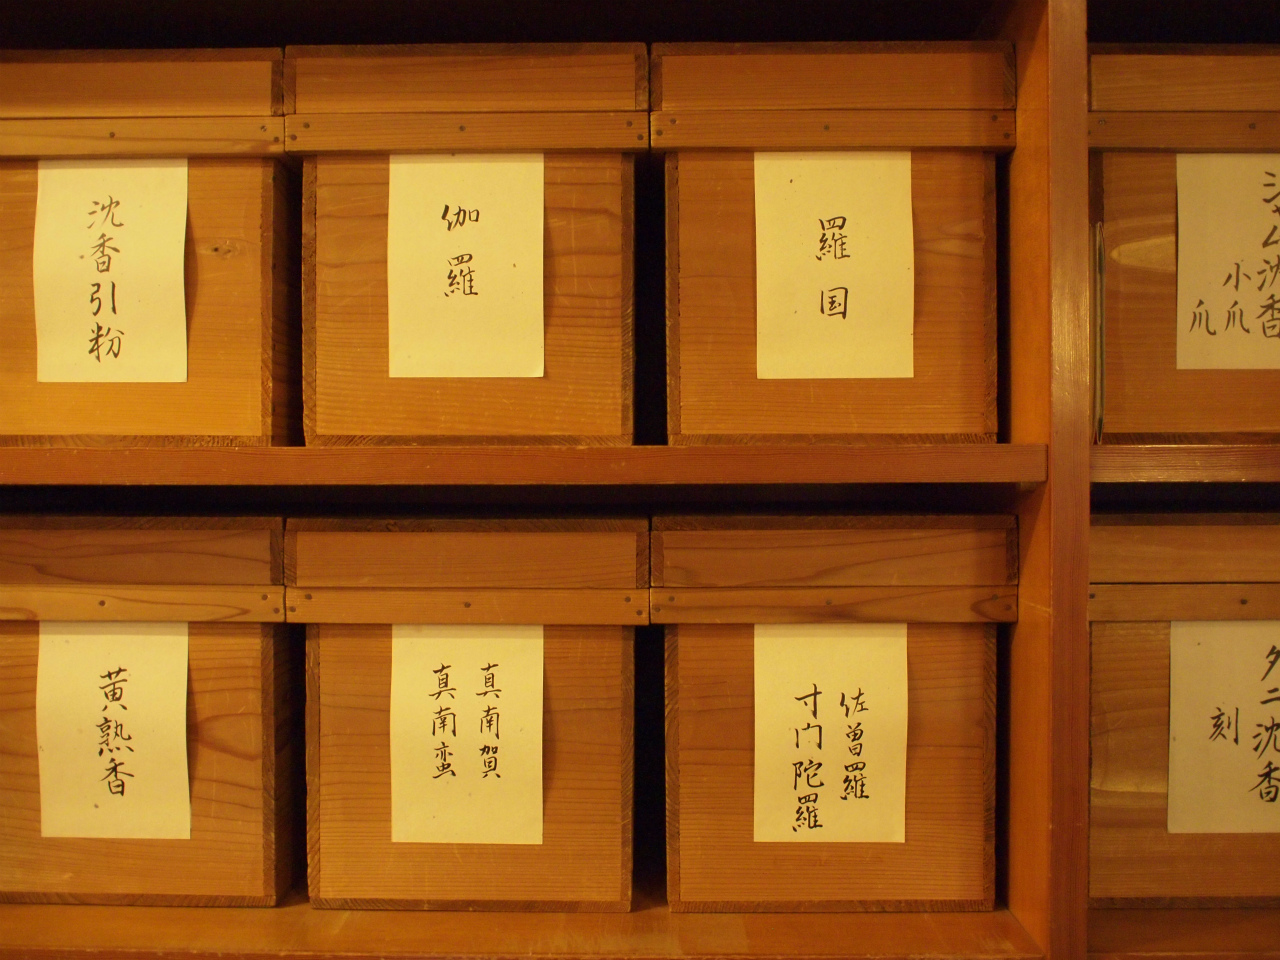 沈香引粉
伽羅
羅国
シャム沈香
小爪
爪
黄熟香
真南賀
真南蛮
佐曽羅
寸门陀羅
タニ沈香
刻